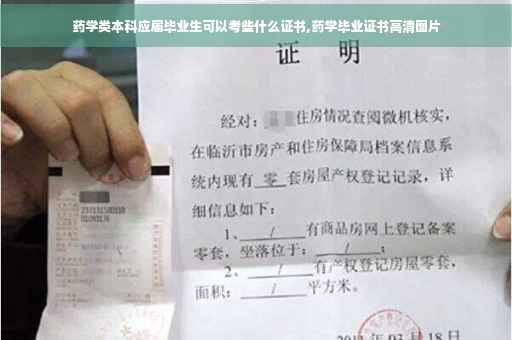 药学类本科应届毕业生可以考些什么证书,药学毕业证书高清图片
证 明
经对: 住房情况查阅微机核实,
在临沂市房产和住房保障局档案信息系
统内现有 零 套房屋产权登记记录,详
细信息如下:
1、 / 有商品房网上登记备案
零套,坐落位于: / ;
2、 / 有产权登记房屋零套,
面积: / 平方米。
03月18日